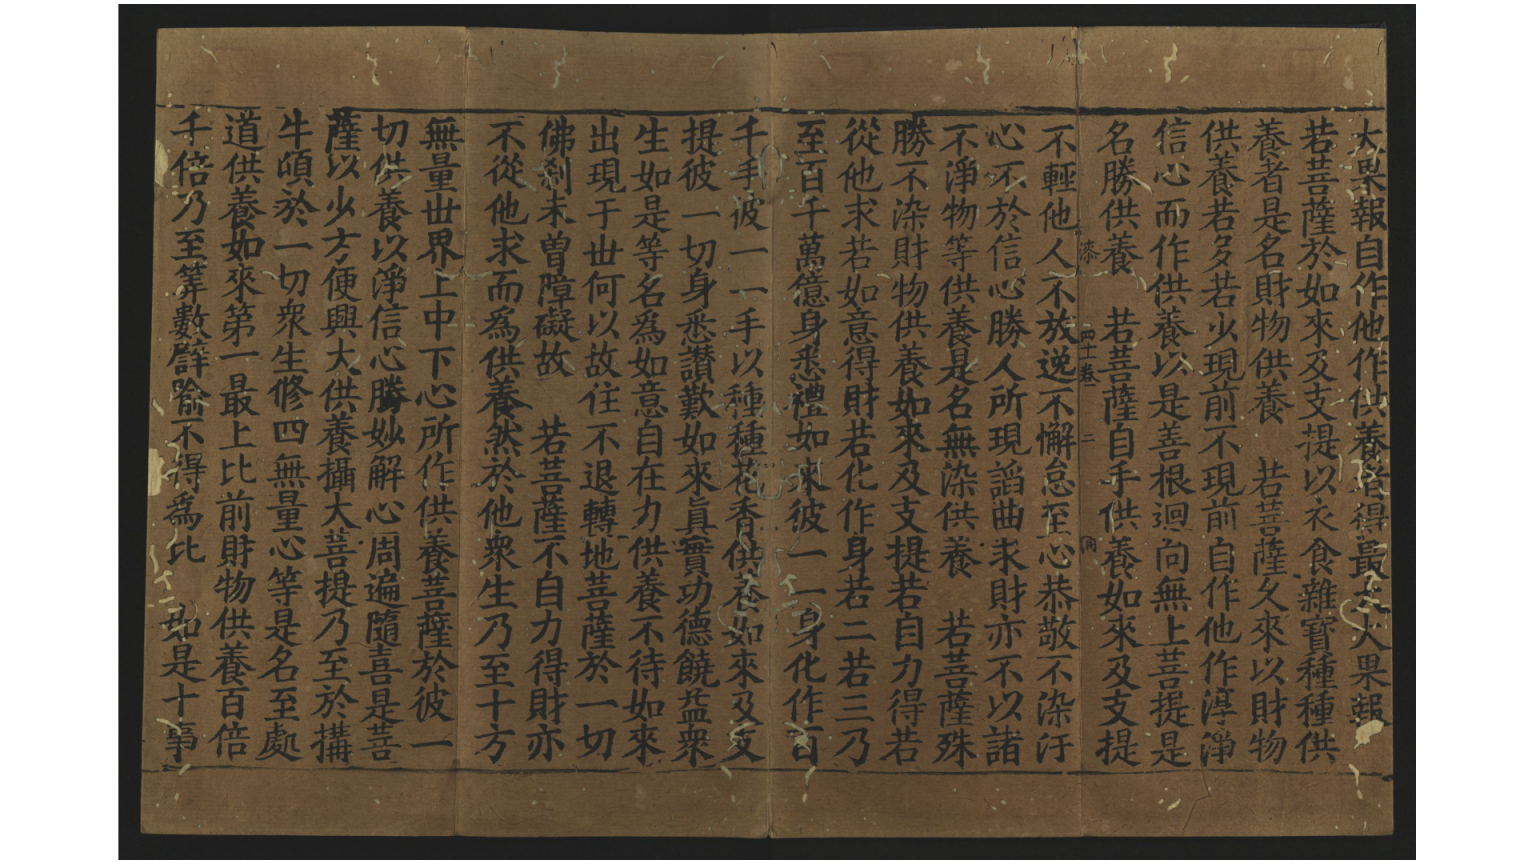 大果報自作他作供養者得最大大果報
若菩薩於如來及支提以衣食雜寶種種供
養者是名財物供養　若菩薩久來以財物
供養若多若少現前不現前自作他作淳淨
信心而作供養以是善根迴向無上菩提是
名勝供養　若菩薩自手供養如來及支提
漆　四十卷　二
不輕他人不放逸不懈怠至心恭敬不染汙
心不於信心勝人所現諂曲求財亦不以諸
不淨物等供養是名無染供養　若菩薩殊
勝不染財物供養如來及支提若自力得若
從他求若如意得財若化作身若二若三乃
至百千萬億身悉禮如來彼一一身化作百
千手彼一一手以種種花香供養如來及支
提彼一切身悉讚歎如來真實功德饒益衆
生如是等名為如意自在力供養不待如來
出現于世何以故住不退轉地菩薩於一切
佛剎未曾障礙故　若菩薩不自力得財亦
不從他求而為供養然於他衆生乃至十方
無量世界上中下心所作供養菩薩於彼一
切供養以淨信心勝妙解心周遍隨喜是菩
薩以少方便興大供養攝大菩提乃至於搆
牛頃於一切衆生修四無量心等是名至處
道供養如來第一最上比前財物供養百倍
千倍乃至筭數譬喻不得為比　如是十事